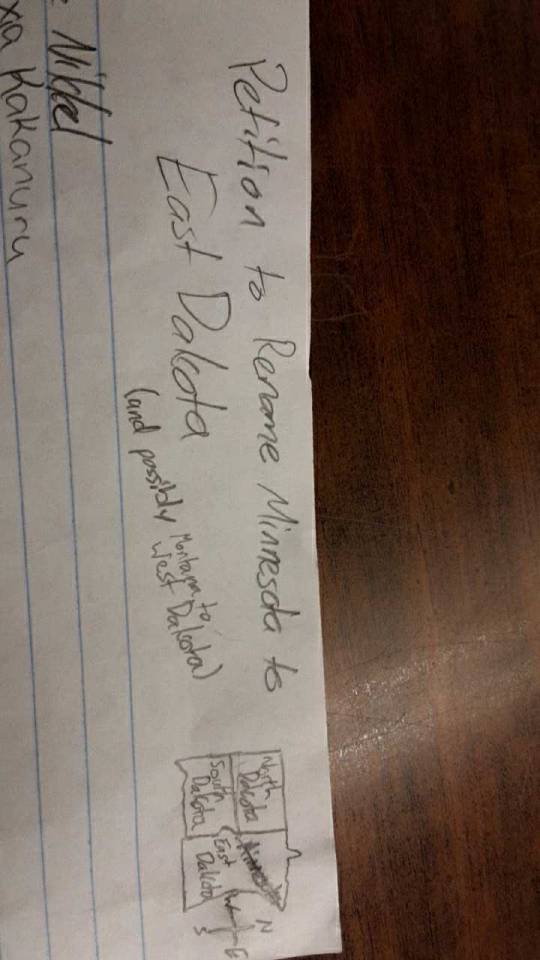 Petition to Rename Minnesota to
East Dakota
(and possibly Montana to
West Dakota)
North
Dakota
South
Dakota
East
Dakota
N
W
E
S
Nibbel
Kakanuru